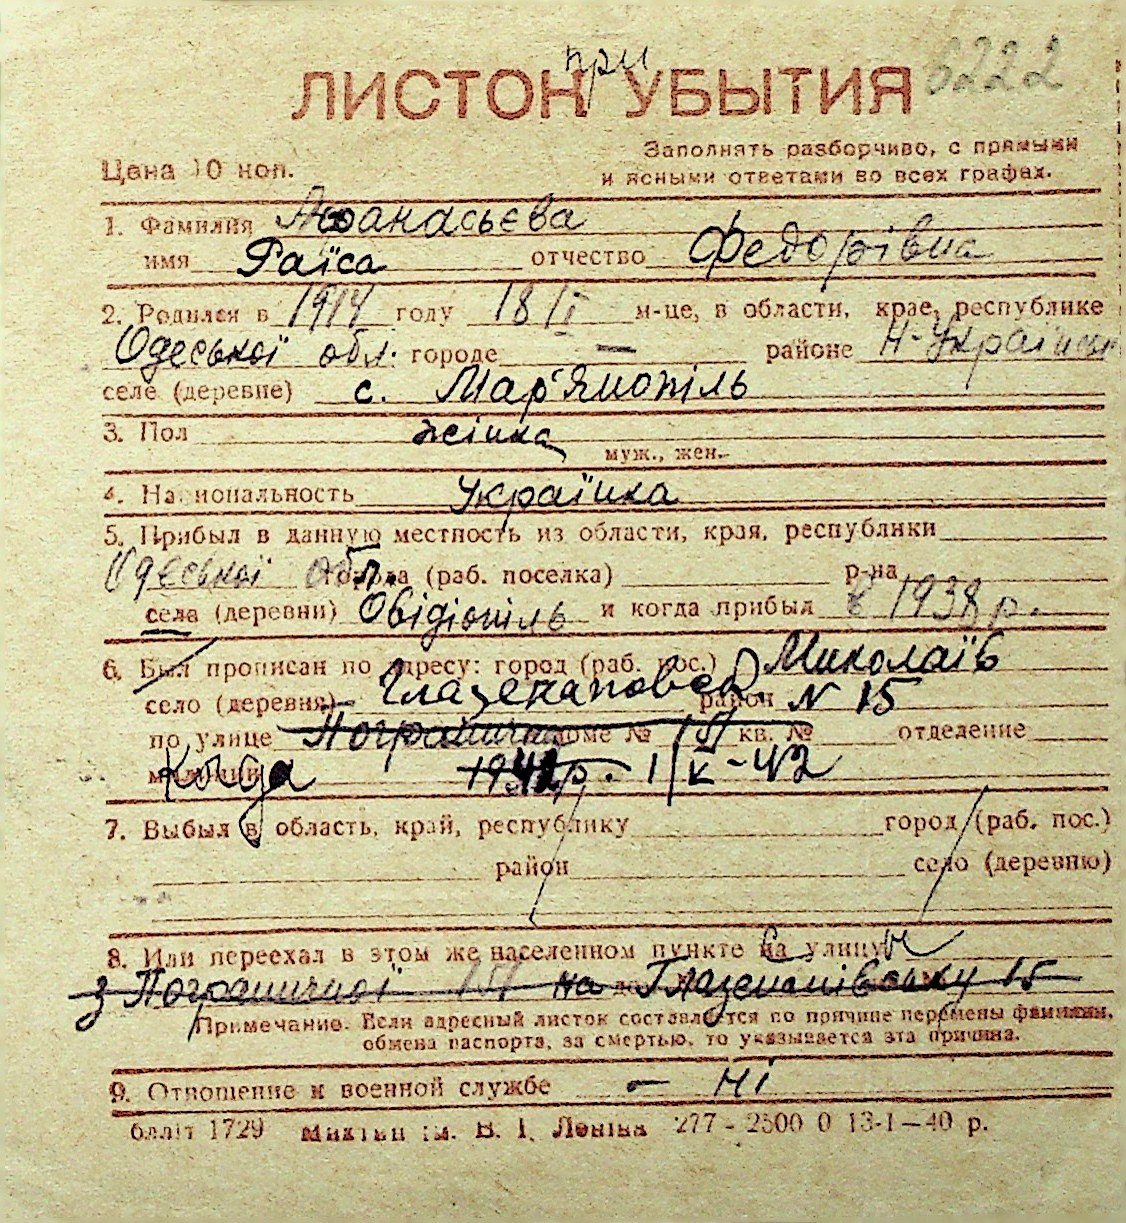 при 6222
ЛИСТОК УБЫТИЯ
Заполнять разборчиво, с прямыми
Цена 10 коп. и ясными ответами во всех графах.
1. Фамилия Афанасьєва
имя Раїса отчество Федорівна
2. Родился в 1914 году 18/I м-це, в области, крае, республике
Одеської обл. городе — районе Н-Українськ
селе (деревне) с. Мар'ямопіль
3. Пол жінка
муж., жен.
4. Национальность Українка
5. Прибыл в данную местность из области, края, республики
Одеської обл. города (раб. поселка) р-на
села (деревни) Овідіопіль и когда прибыл в 1938 р.
6. Был прописан по адресу: город (раб. пос.) Миколаїв
село (деревня) Глазенаповск. район N 15
по улице Погранична доме № 151 кв. № отделение
милиции Когда 1942 р. 1/V-42
7. Выбыл в область, край, республику город (раб. пос.)
район село (деревню)
8. Или переехал в этом же населенном пункте на улицу
з Пограничної 151 на Глазенапівську 15
Примечание. Если адресный листок составляется по причине перемены фамилии,
обмена паспорта, за смертью, то указывается эта причина.
9. Отношение к военной службе — ні
блліт 1729 Миктип ім. В. І. Леніна 277 - 2500 0 13-1-40 р.